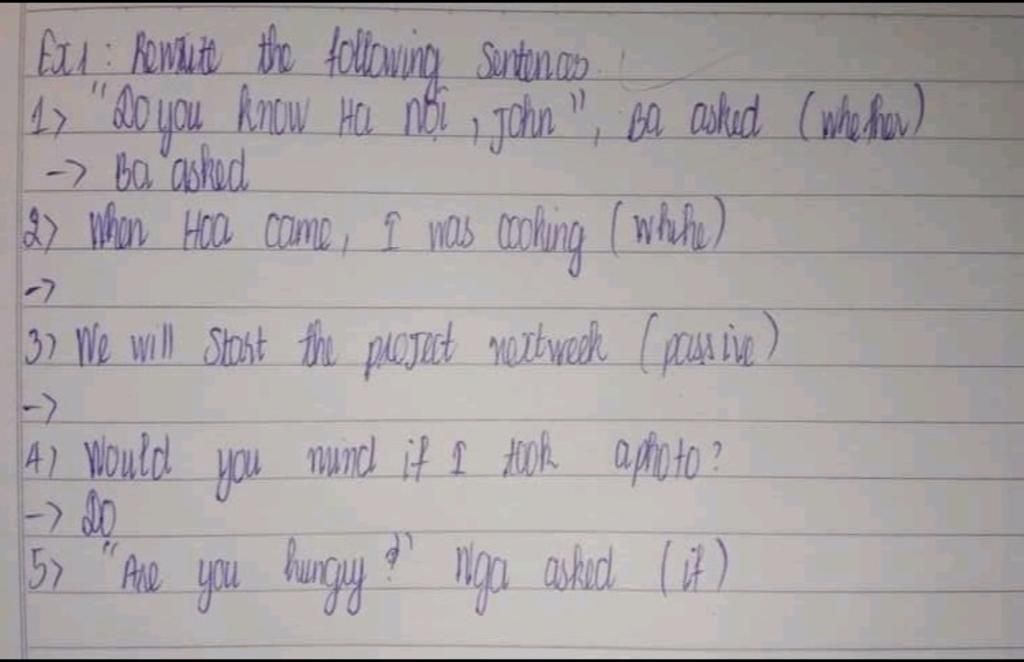 Ex1: Rewrite the following sentences.
1> "Do you know Ha nội, John", Ba asked (whether)
-> Ba asked
2> When Hoa came, I was cooking (while)
->
3> We will start the project next week (passive)
->
4) Would you mind if I took a photo?
-> Do
5> "Are you hungry?" Nga asked (if)